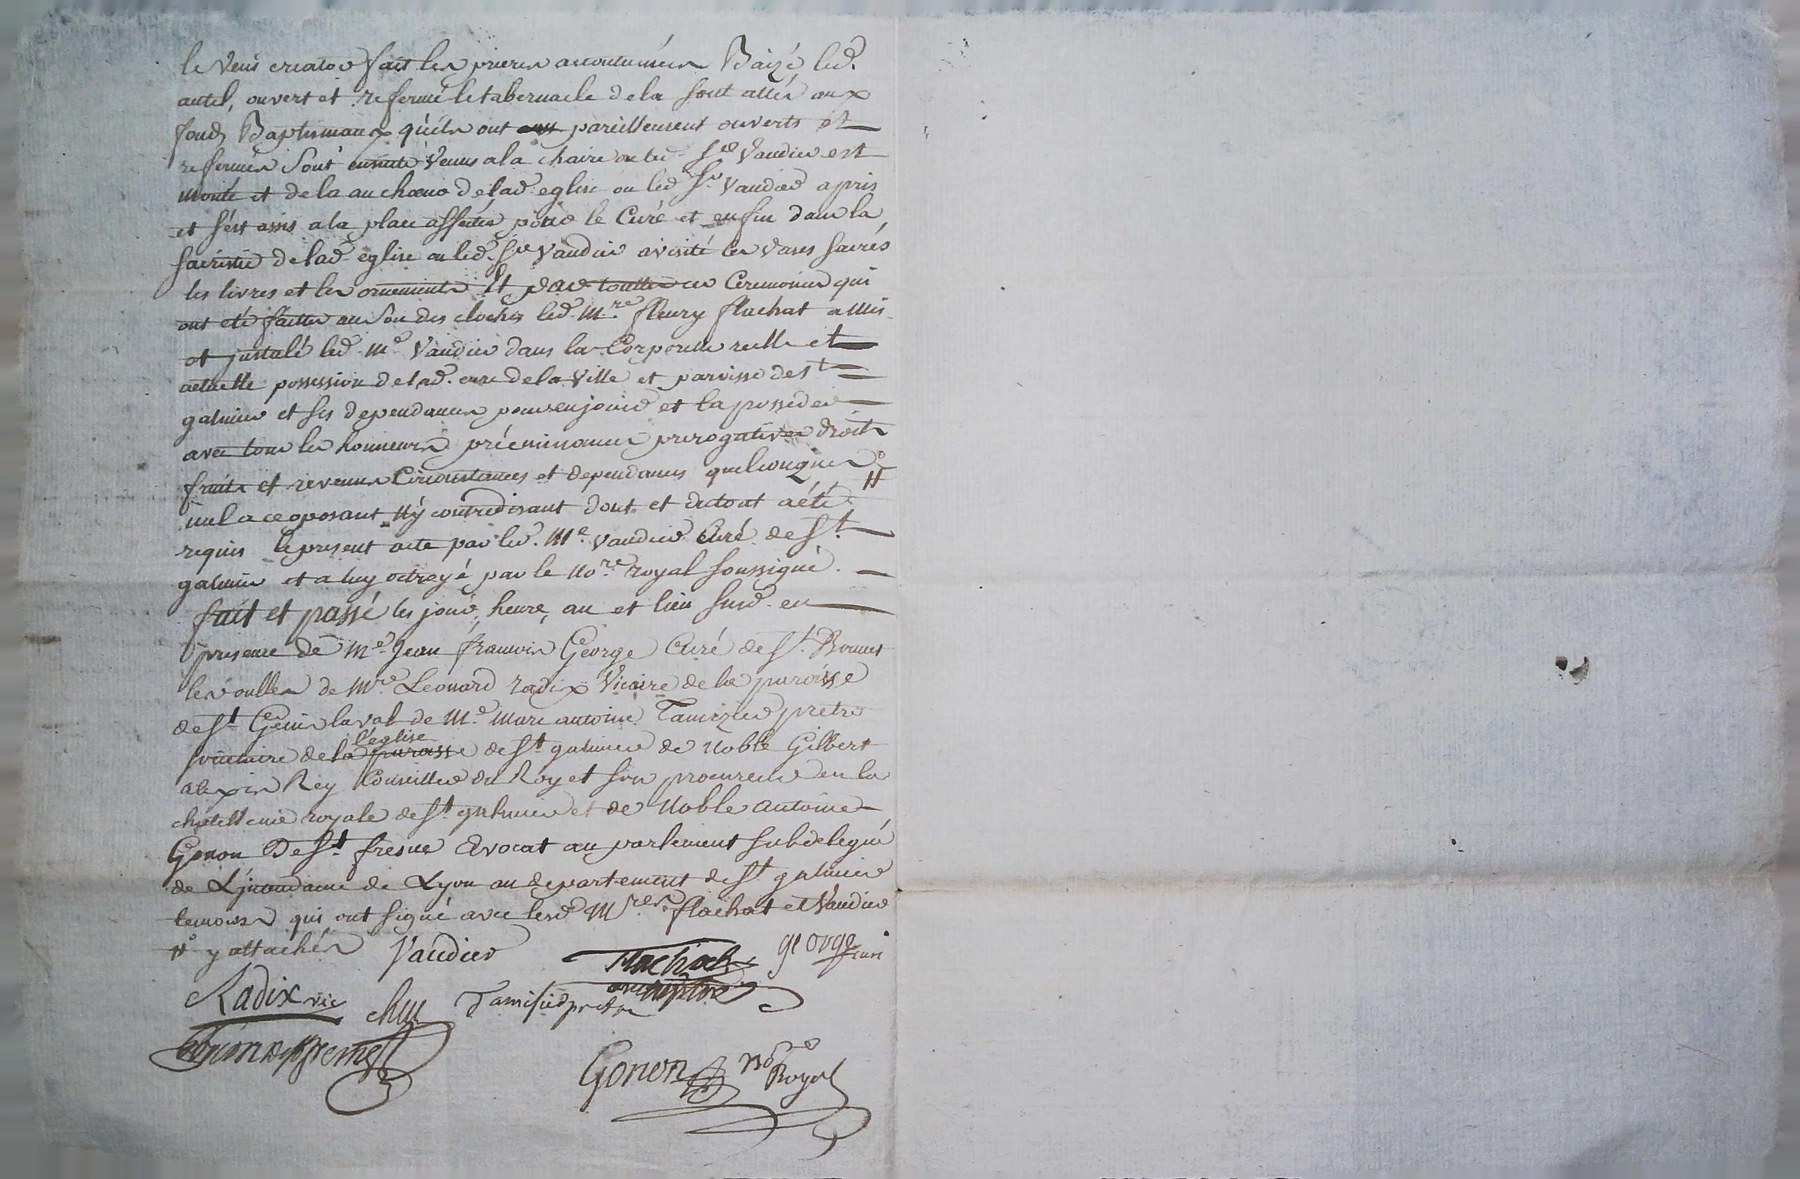 le veni creator fait les prieres accoutumées Baizé led.
autel, ouvert et refermé le tabernacle de la sont allés aux
fonds Baptismaux qu'ils ont pareillement ouverts et
refermés sont ensuite venus a la chaire ou led. Sr Vaudier est
monté et de la au chœur de lad. eglise ou led. Sr. Vaudier a pris
et s'est assis a la place affectée pour le Curé et enfin dans la
sacristie de lad. eglise ou led. Sr Vaudier a visité les vases sacrés
les livres et les ornements Et par touttes ces Ceremonies qui
ont eté faittes au son des cloches led. Mre. fleury flachat a mis
et jnstalé led. Me. Vaudier dans la Corporelle reelle et
actuelle possession de lad. cure de la ville et paroisse de St
galmier et ses dependances pour en jouir et la posseder
avec tous les honneurs prééminances prerogatives droits
fruits et revenus Circonstances et dependances quelconques #
nul a ce oposant ny contredisant dont et du tout a été
requis le present acte par led. Me. vaudier Curé de St.
galmier et a luy octroyé par le nore. royal soussigné.
fait et passé les jour, heure, an et lieu susd. en
presence de Me. Jean françois George Curé de St. Bonnet
les oulles de Mre Leonard radix Vicaire de la paroisse
de St Genis laval de Me. Marc antoine Tamizier pretre
societaire de la paroisse l'eglise de St galmier de Noble Gilbert
alexis Rey Conseiller du Roy et son procureur en la
chatellenie royale de St galmier et de Noble antoine
Gonon De St. fresne Avocat au parlement subdelegué
de L'jntendance de Lyon au departement de St galmier
temoins qui ont signé avec lesd. Mres. flachat et Vaudier
# y attachés Vaudier flachat george curé
Radix vic Tamisier pretre
Gonon de St fresne
Gonon nore Royal